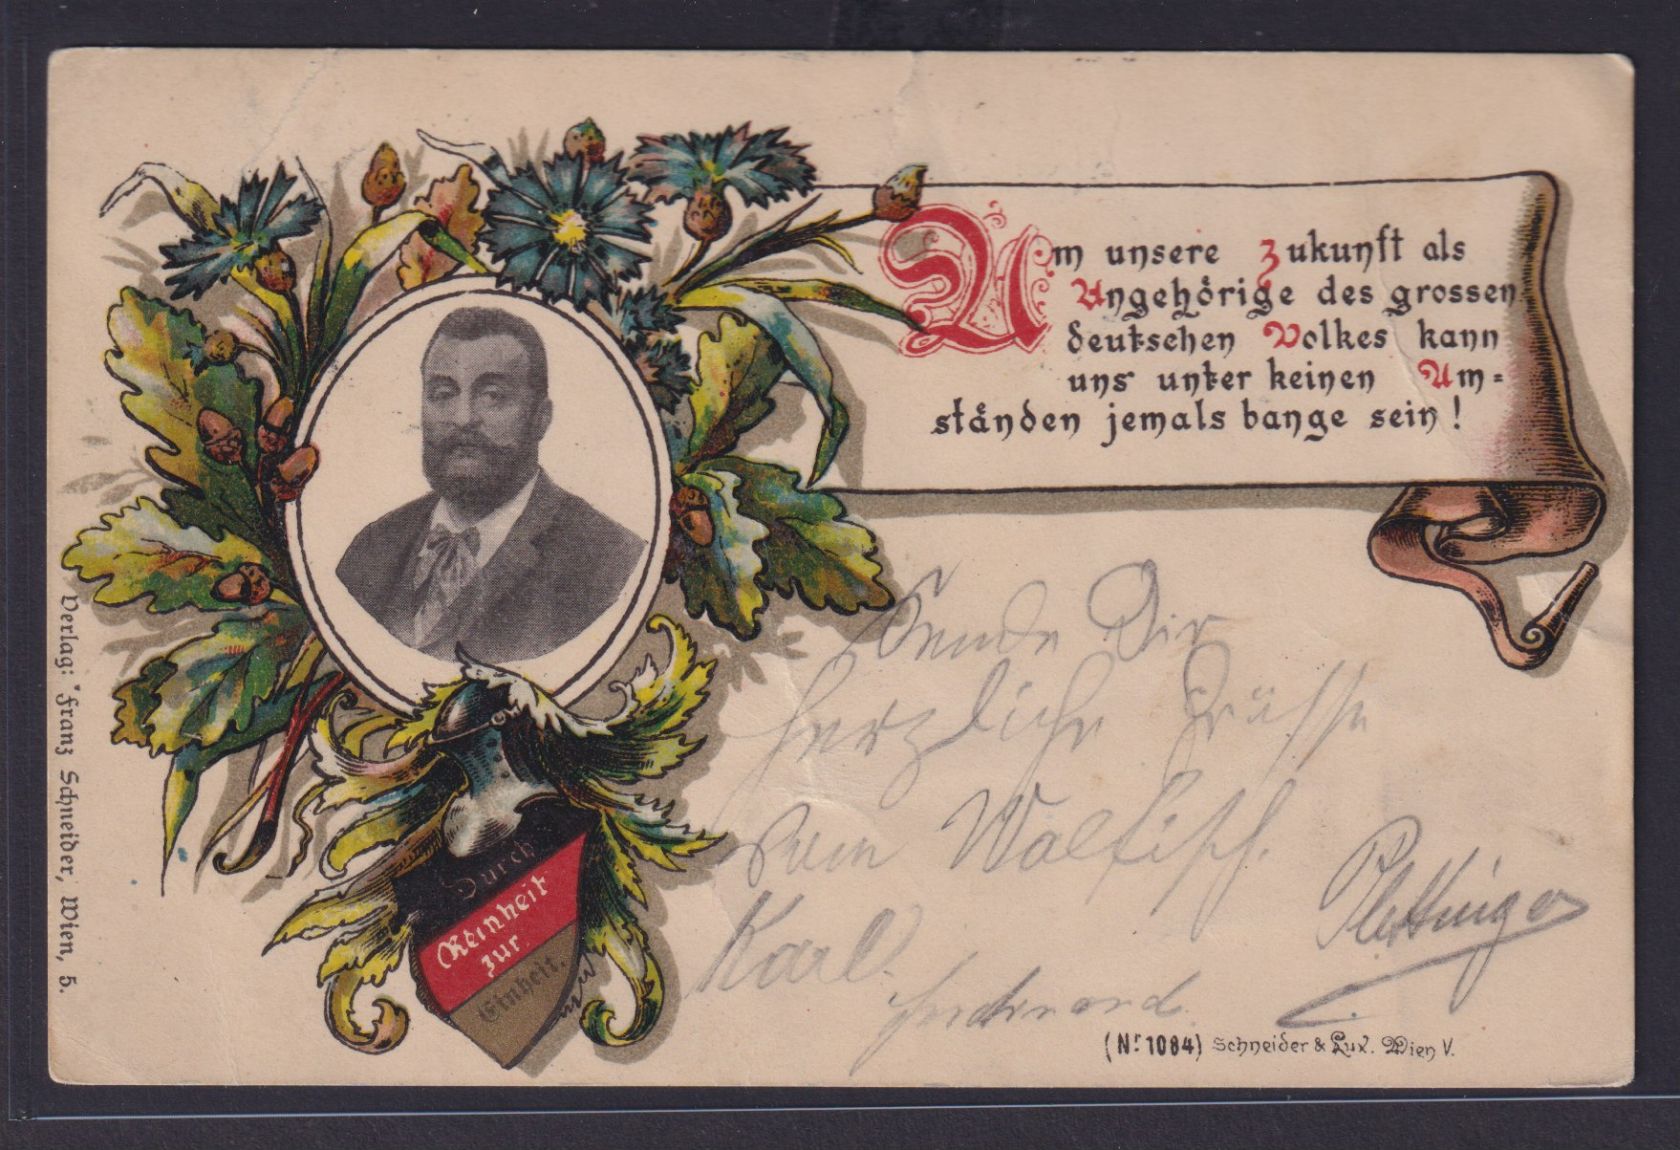 Um unsere Zukunft als
Angehörige des grossen
deutschen Volkes kann
uns unter keinen Um-
ständen jemals bange sein!
Sende Dir
herzliche Grüsse
vom Walfisch.
Karl
Ferdinand
Durch
Reinheit
zur
Einheit.
Verlag: Franz Schneider, Wien, 5.
(Nr. 1084) Schneider & Lux. Wien V.